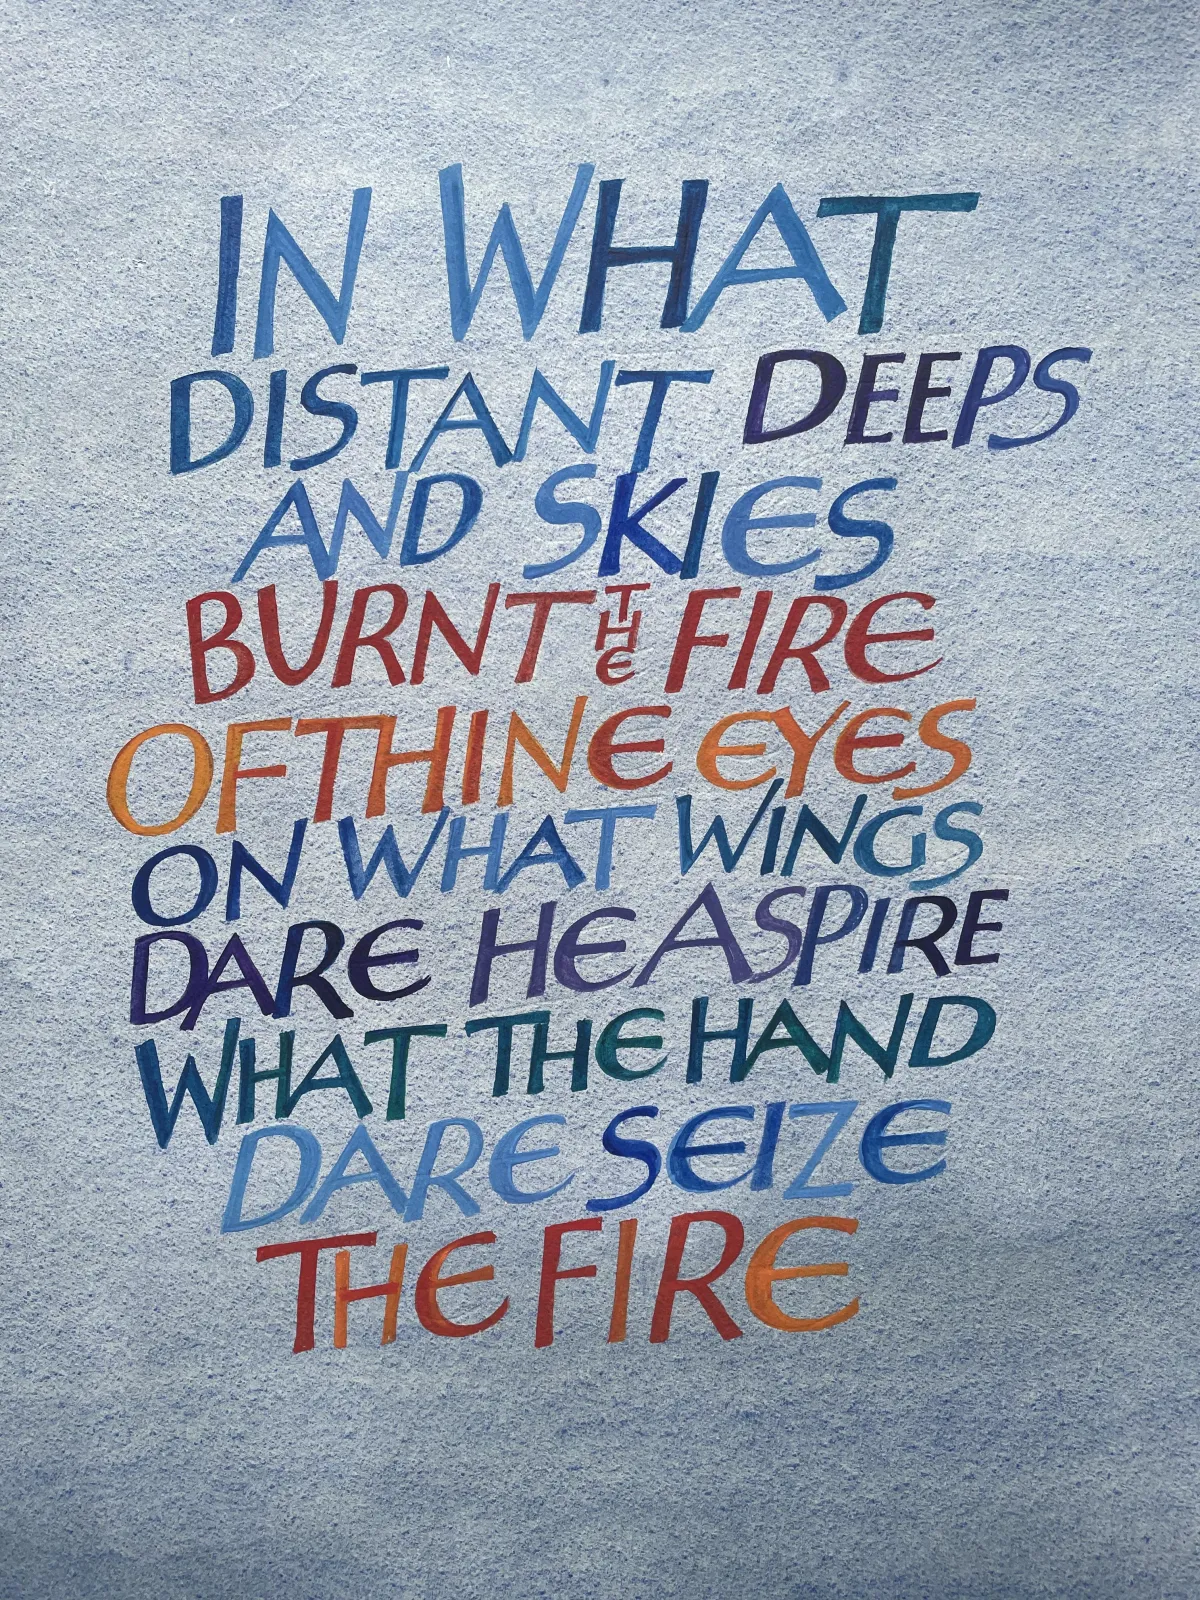 IN WHAT
DISTANT DEEPS
AND SKIES
BURNT THE FIRE
OF THINE EYES
ON WHAT WINGS
DARE HE ASPIRE
WHAT THE HAND
DARE SEIZE
THE FIRE